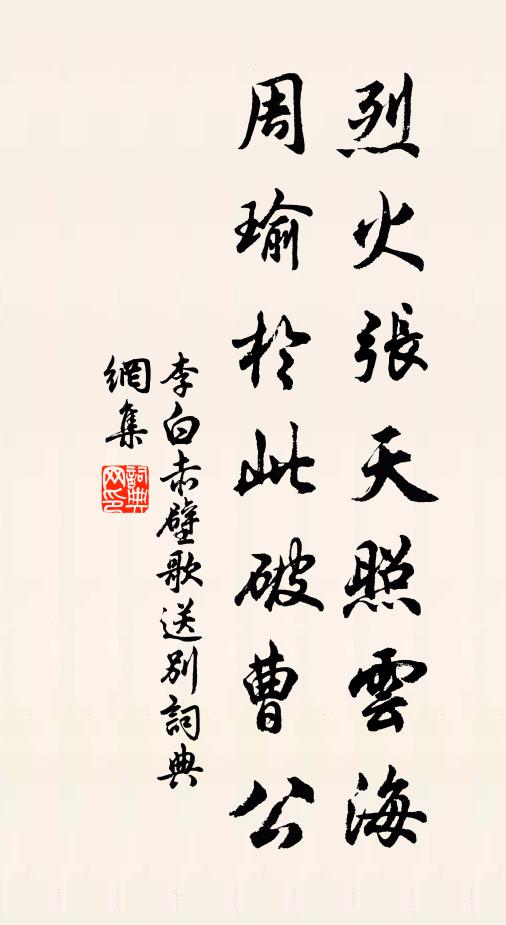 烈火張天照雲海
周瑜於此破曹公
李白赤壁歌送別詞典
網集
詞典
网印